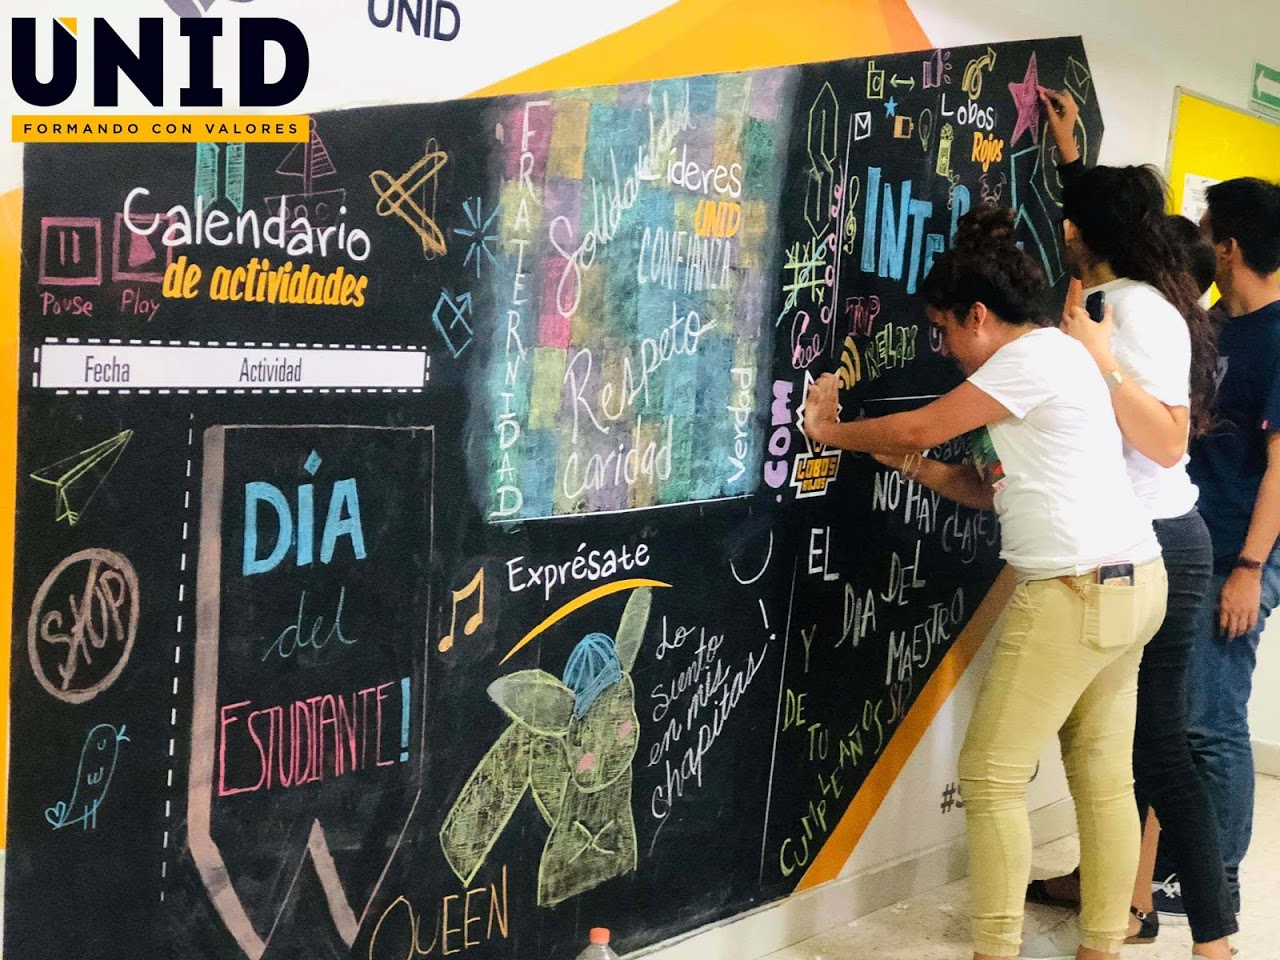 UNID
FORMANDO CON VALORES
UNID
Calendario
de actividades
Pause Play
Fecha Actividad
DÍA
del
ESTUDIANTE!
SHOP
FRATERNIDAD
Solidaridad
Líderes
UNID
CONFIANZA
Respeto
caridad
Verdad
Exprésate
Lo
siento
en mis
chapitas!
QUEEN
.COM
Lobos
Rojos
TOP
RELAX
LOBOS
ROJOS
NO HAY
CLASES
EL
DIA DEL
MAESTRO
Y
DE
TU
CUMPLEAÑOS SI